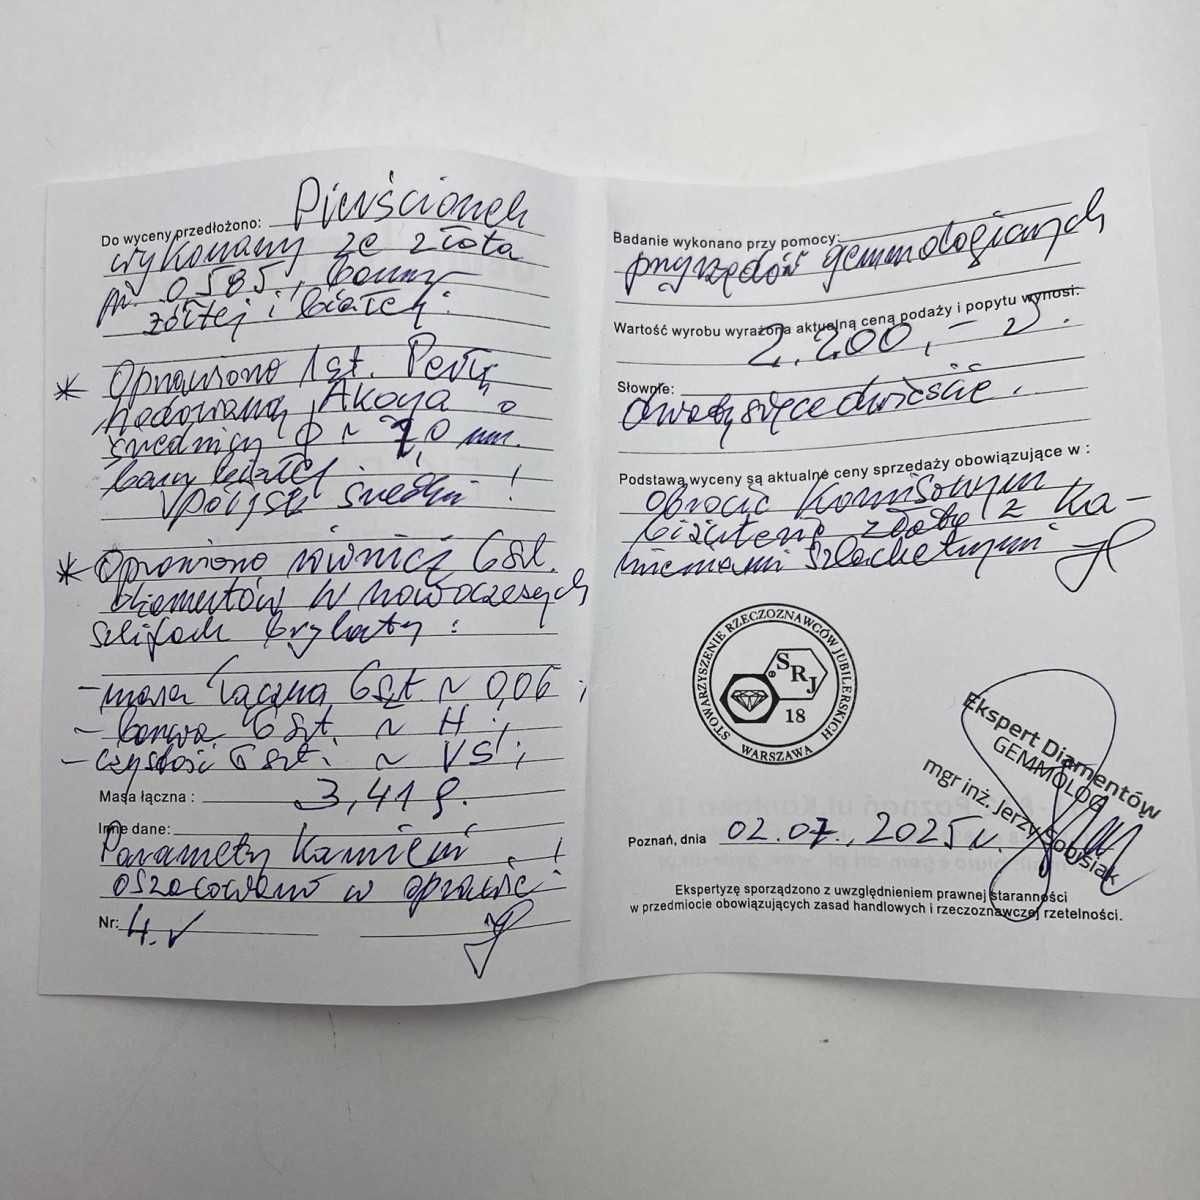 Do wyceny przedłożono: Pierścionek
wykonany ze złota
pr. 0,585, barwy
żółtej i białej:
* Oprawiono 1 szt. Perłę
hodowaną Akoya o
średnicy ϕ ~ 7,0 mm.
barwy białej.
Połysk średni!
* Oprawiono również 6 szt.
diamentów w nowoczesnych
szlifach brylanty:
- masa łączna 6 szt ~ 0,06;
- barwa 6 szt. ~ H;
- czystość 6 szt. ~ VS;
Masa łączna: 3,41 g.
Inne dane:
Parametry kamieni
oszacowano w oprawie!
Nr: 4.
Badanie wykonano przy pomocy:
przyrządów gemmologicznych
Wartość wyrobu wyrażona aktualną ceną podaży i popytu wynosi:
2.200,- zł.
Słownie:
dwa tysiące dwieście.
Podstawą wyceny są aktualne ceny sprzedaży obowiązujące w :
obrocie komisowym
biżuterią złotą z ka-
mieniami szlachetnymi
STOWARZYSZENIE RZECZOZNAWCÓW JUBILERSKICH
SRJ
18
WARSZAWA
Ekspert Diamentów
GEMMOLOG
mgr inż. Jerzy Sobisiak
Poznań, dnia 02.07.2025 r.
Ekspertyzę sporządzono z uwzględnieniem prawnej staranności
w przedmiocie obowiązujących zasad handlowych i rzeczoznawczej rzetelności.